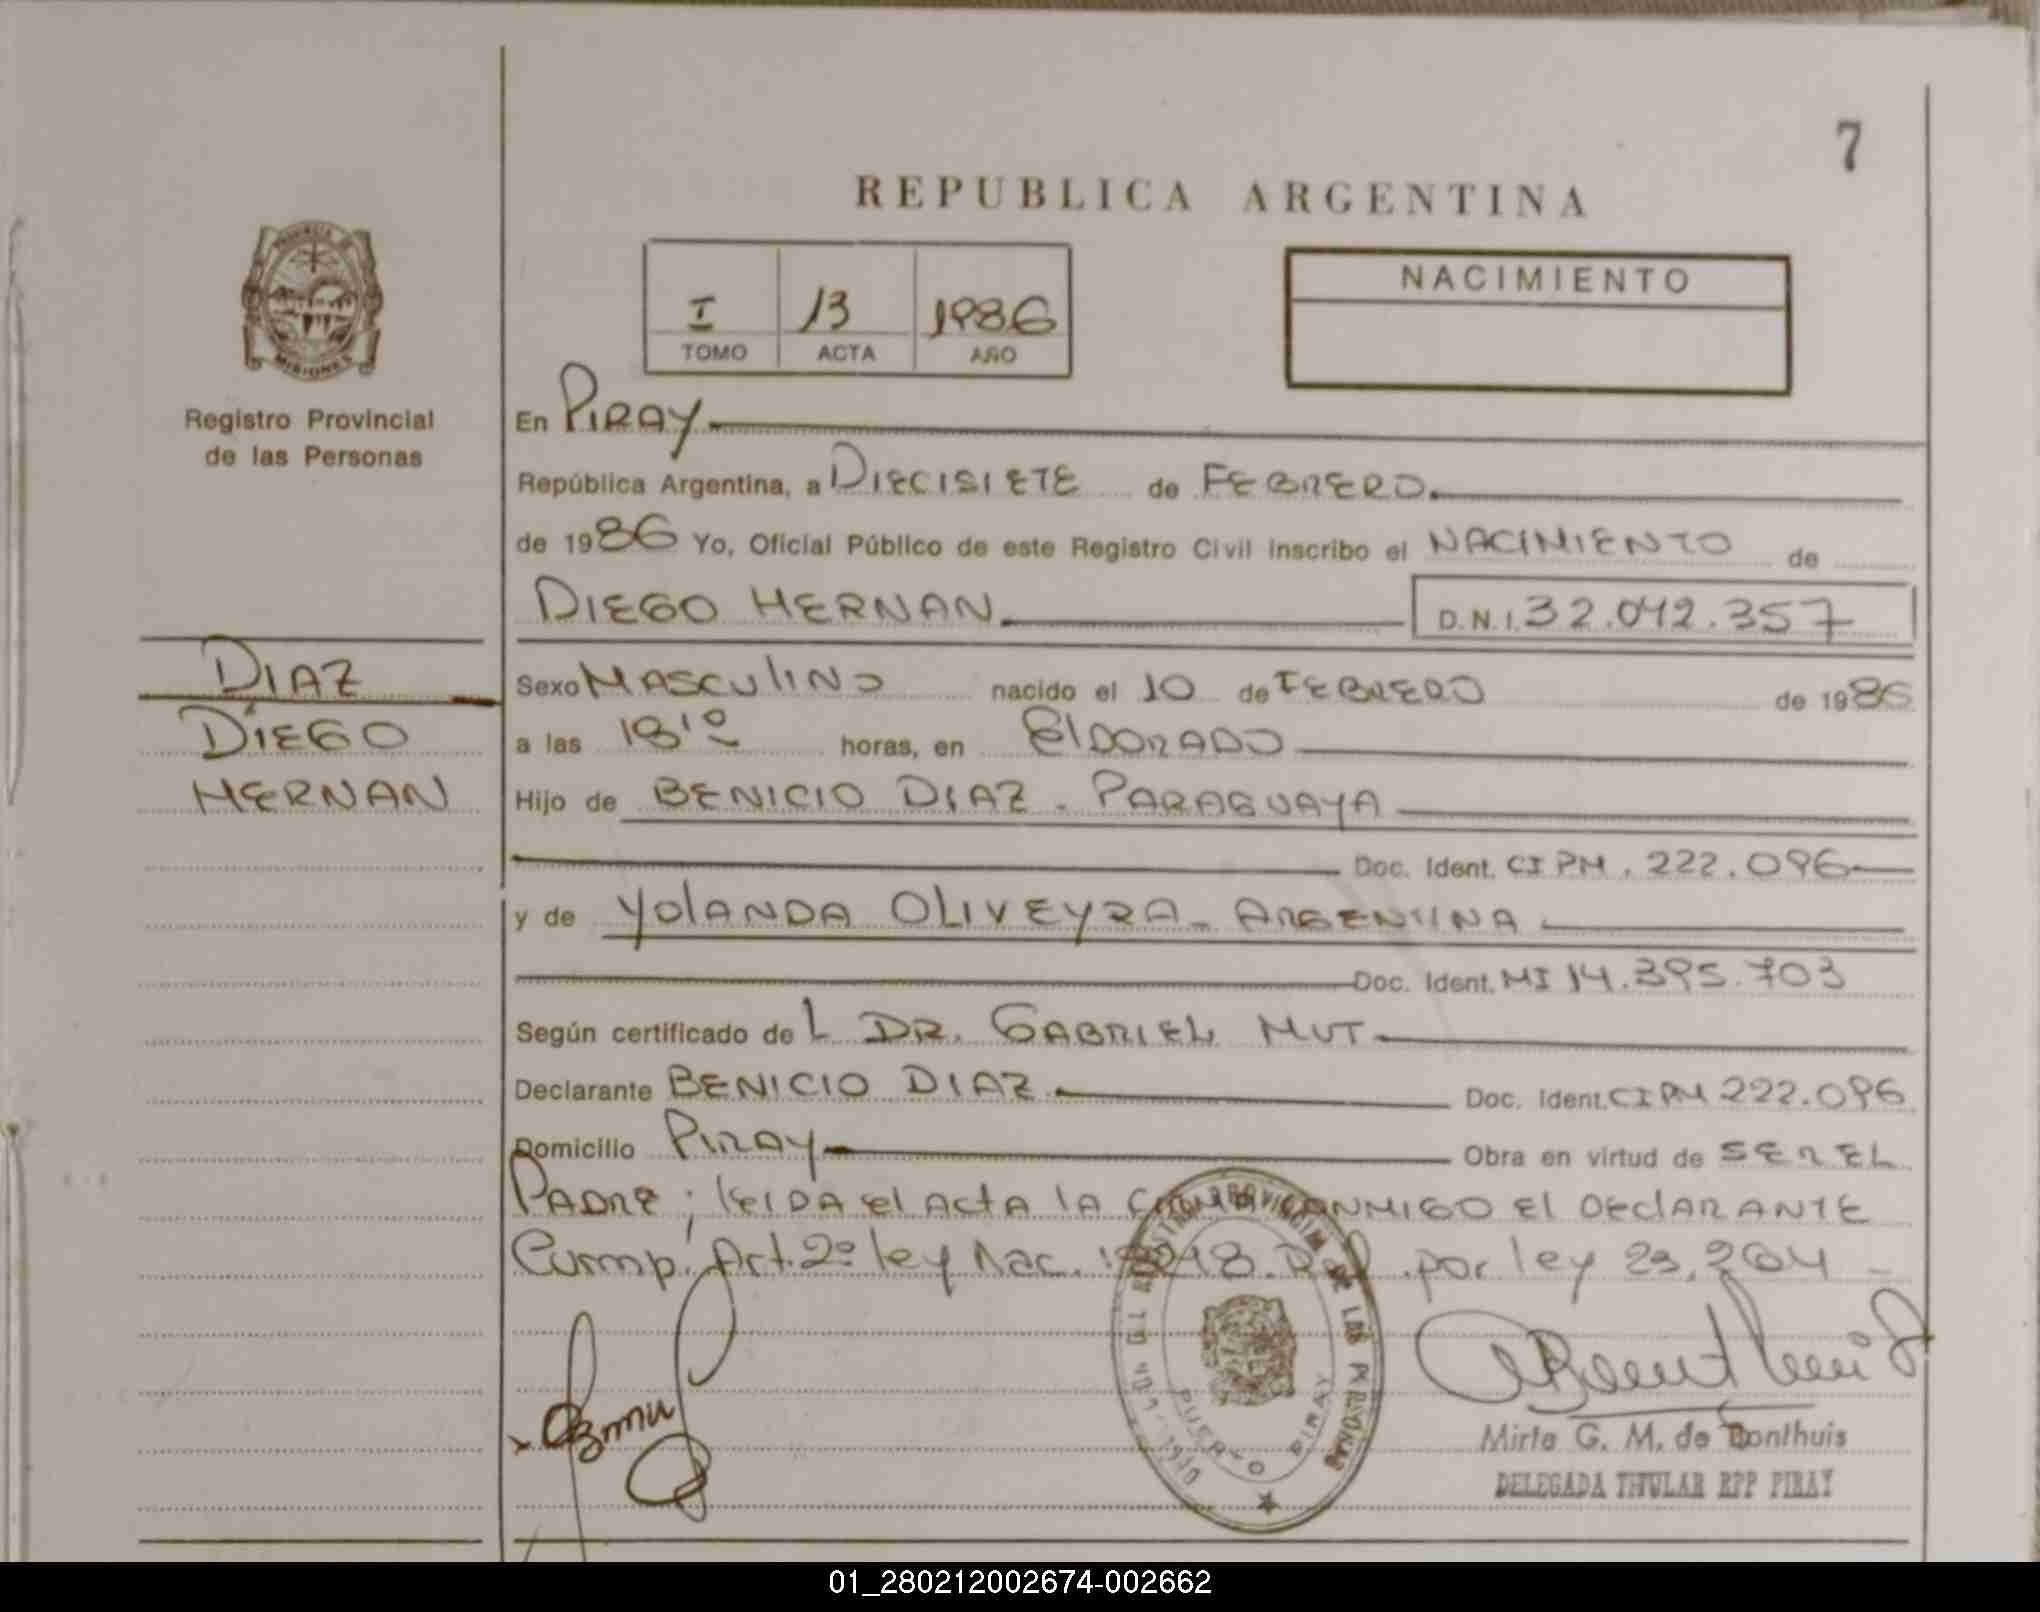 7
REPUBLICA ARGENTINA
PROVINCIA DE
MISIONES
Registro Provincial
de las Personas
I 13 1986
TOMO ACTA AÑO
NACIMIENTO
En PIRAY
República Argentina, a DIECISIETE de FEBRERO.
de 1986 Yo, Oficial Público de este Registro Civil inscribo el NACIMIENTO de
DIEGO HERNAN. D.N.I. 32.042.357
DIAZ
DIEGO
HERNAN
Sexo MASCULINO nacido el 10 de FEBRERO de 1986
a las 18'º horas, en ElDORADO
Hijo de BENICIO DIAZ - PARAGUAYA
Doc. Ident. CI PM. 222.096
y de YOLANDA OLIVEYRA - ARGENTINA
Doc. Ident. MI 14.395.703
Según certificado de L DR. GABRIEL MUT
Declarante BENICIO DIAZ Doc. Ident. CI PM 222.096
Domicilio PIRAY Obra en virtud de SER EL
PADRE; leIDA el ActA lA CONMIGO El DEClARANTE
Cump. Art. 2º ley Nac. 18248. por ley 23,264
PUERTO PIRAY
Mirta G. M. de Bonthuis
DELEGADA TITULAR RPP PIRAY
01_280212002674-002662